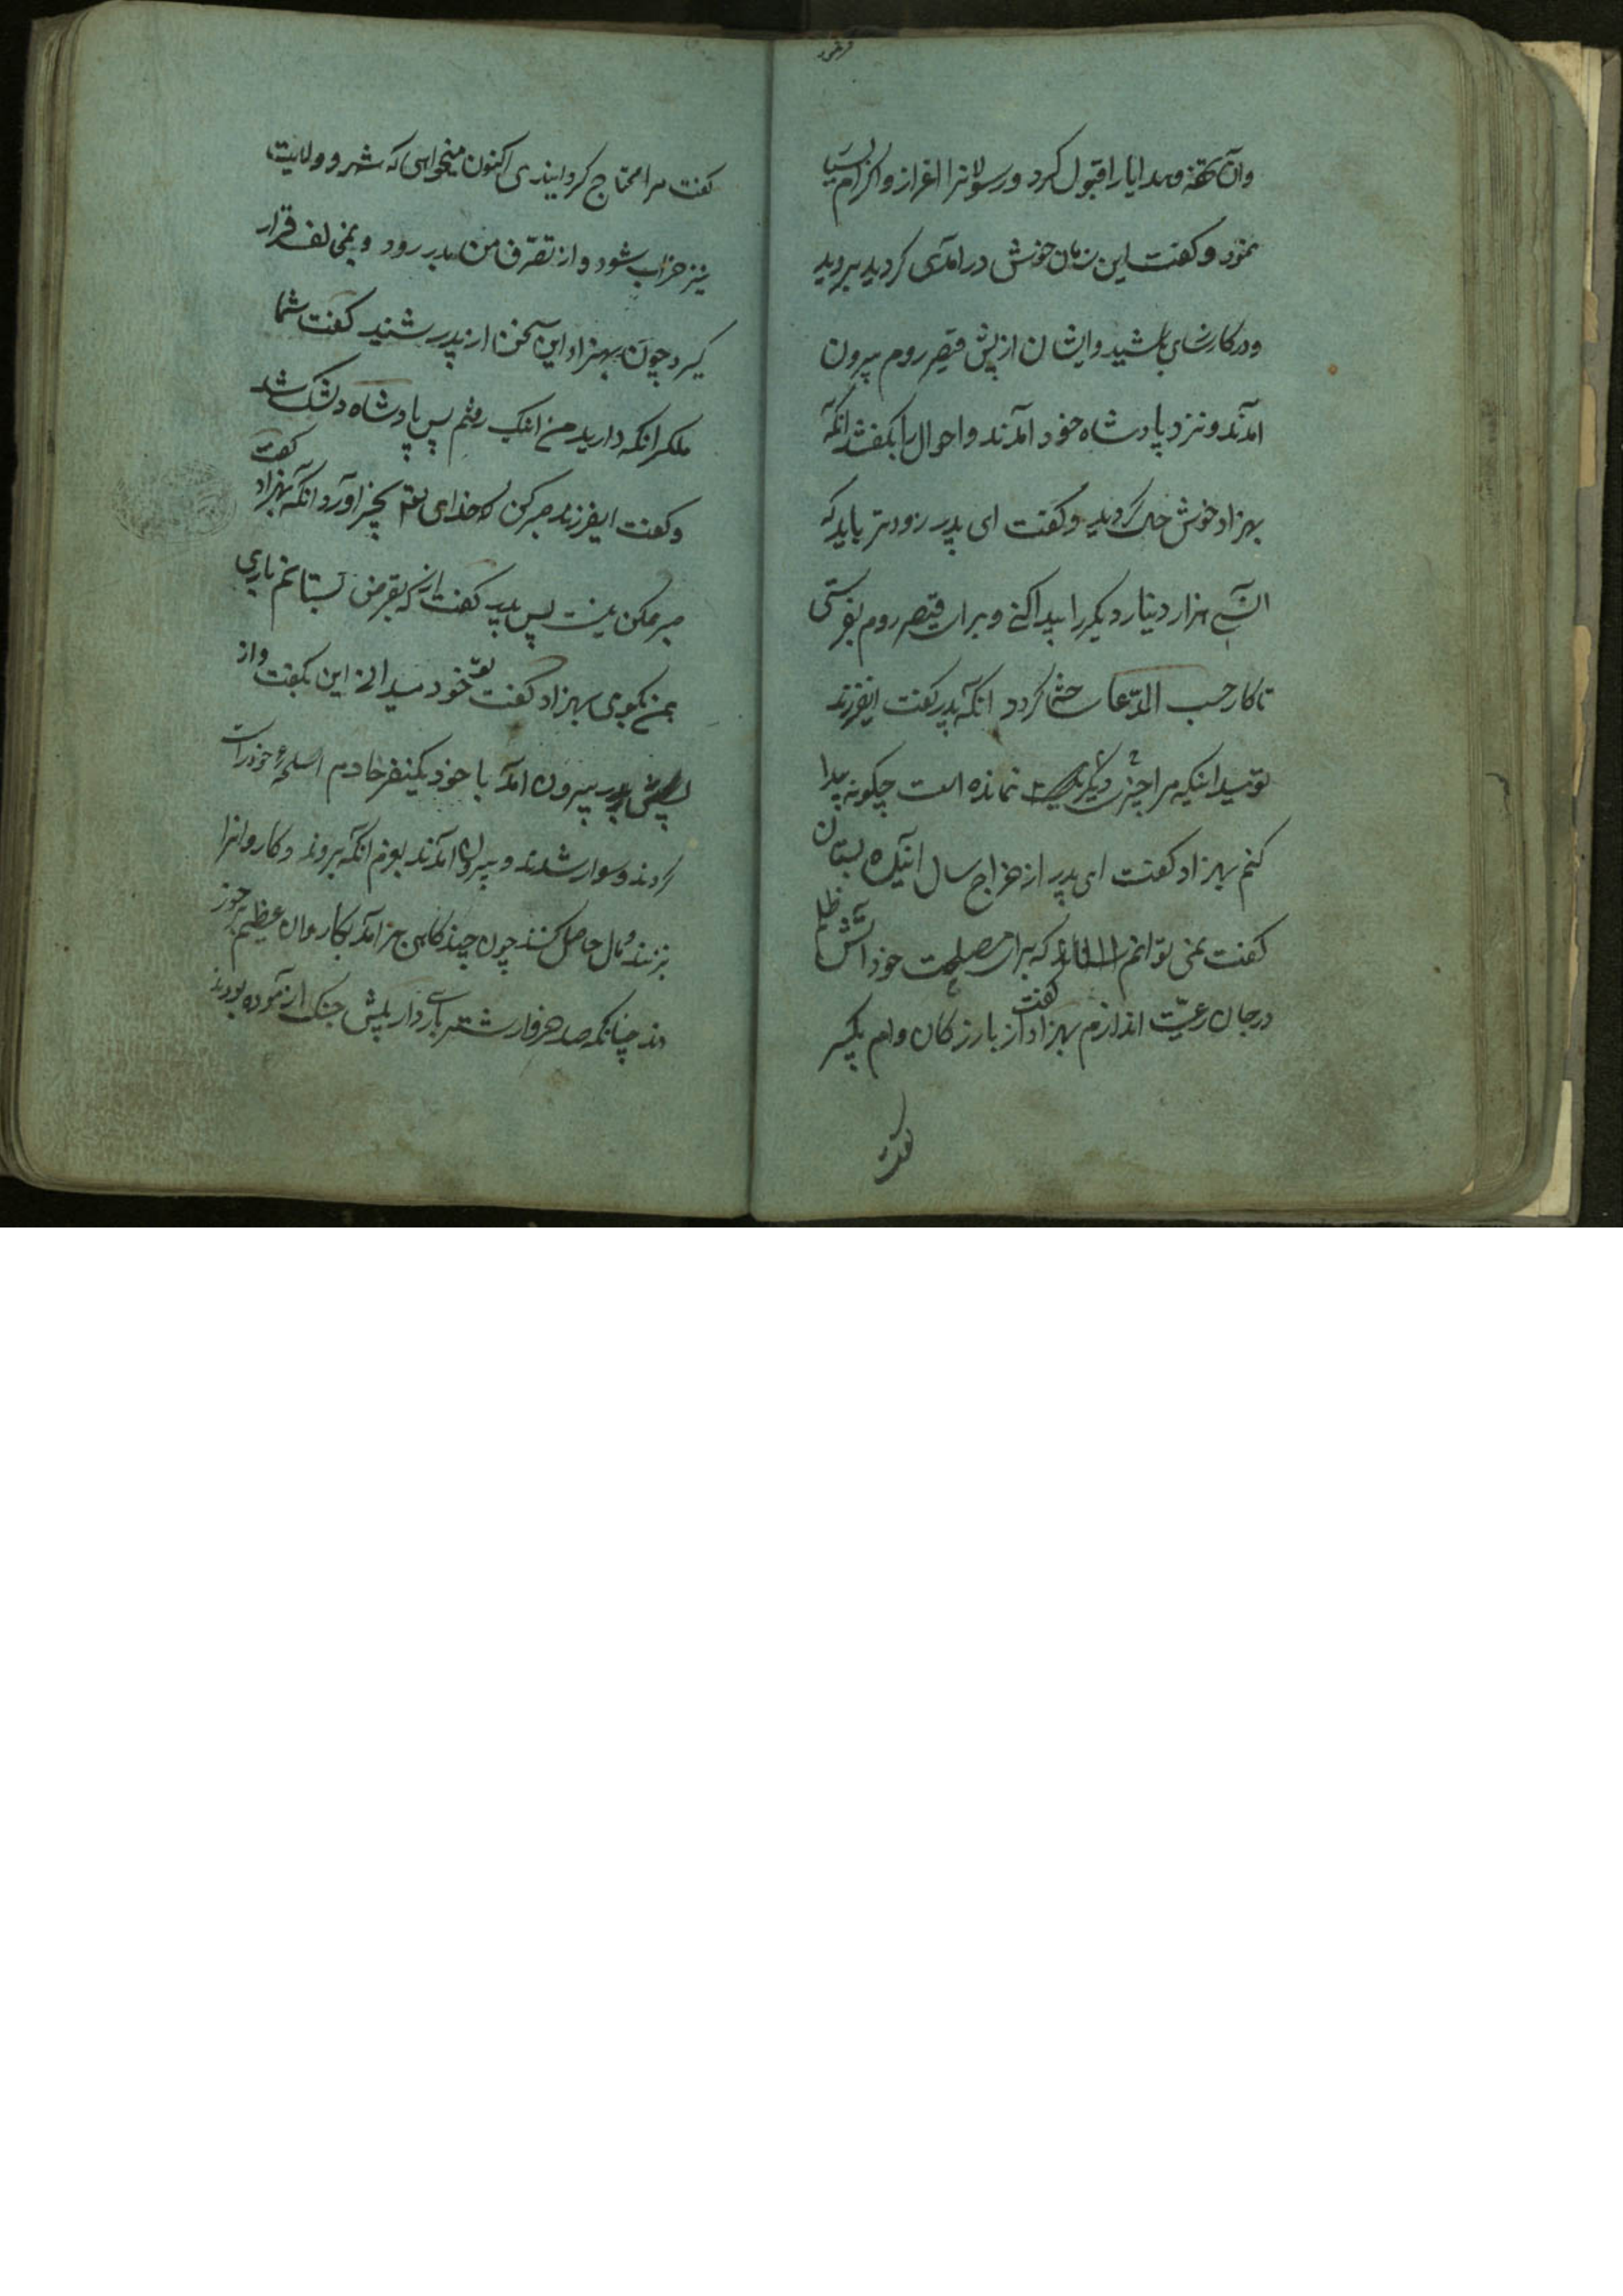 وان تحفه وهدایا را قبول کرد ورسولانرا اغراز واکرام بسیار
نمود وکفت این زمان خوش درامدی کردید بروید
ودر کارسای باشید وایشان از پیش قیصر روم بیرون
آمدند ونزد پادشاه خود آمدند واحوال را بکفتند انکه
بهزاد خوش حال کردید وکفت ای پدر زودتر باید که
ان سی هزار دینار دیکر را پیدا کنی وبرای قیصر روم بفرستی
تا کار حسب المدعا ساخته کردد انکه پدر کفت ایفرزند
تو میدانیکه مرا چیزی دیکر نمانده است چکونه پیدا
کنم بهزاد کفت ای پدر از خراج سال اینده بستان
کفت نمی توانم که برای مصلحت خود آتش ظلم
در جان رعیّت اندازم بهزاد کفت از بازرکان وام بکیر
کفت
کفت مرا محتاج کردانیدی اکنون میخواهی که شهر و ولایت
نیز خراب شود واز تصرّف من بدر رود وبمخالف قرار
کیرد چون بهزاد این سخن از پدر شنید کفت شما
ملکرا نکه دارید من اینک رفتم پس پادشاه دلتنک شد
وکفت ایفرزند صبر کن که خدای تعم بخیر اورد انکه بهزاد کفت
صبر ممکن نیست پس پدر کفت از که بقرض بستانم باری
بمن بکوی بهزاد کفت تو خود میدانی این بکفت واز
پیش پدر بیرون امد با خود یکنفر خادم اسلحهٔ خود راست
کردند وسوار شدند وبیرون آمدند بعزم انکه بروند وکاروانرا
بزنند ومال حاصل کنند چون چند کاهی بر امد بکاروان عظیم برخورد
ند چنانکه صد هزار شتر باردار پیش جنک ازموده بودند